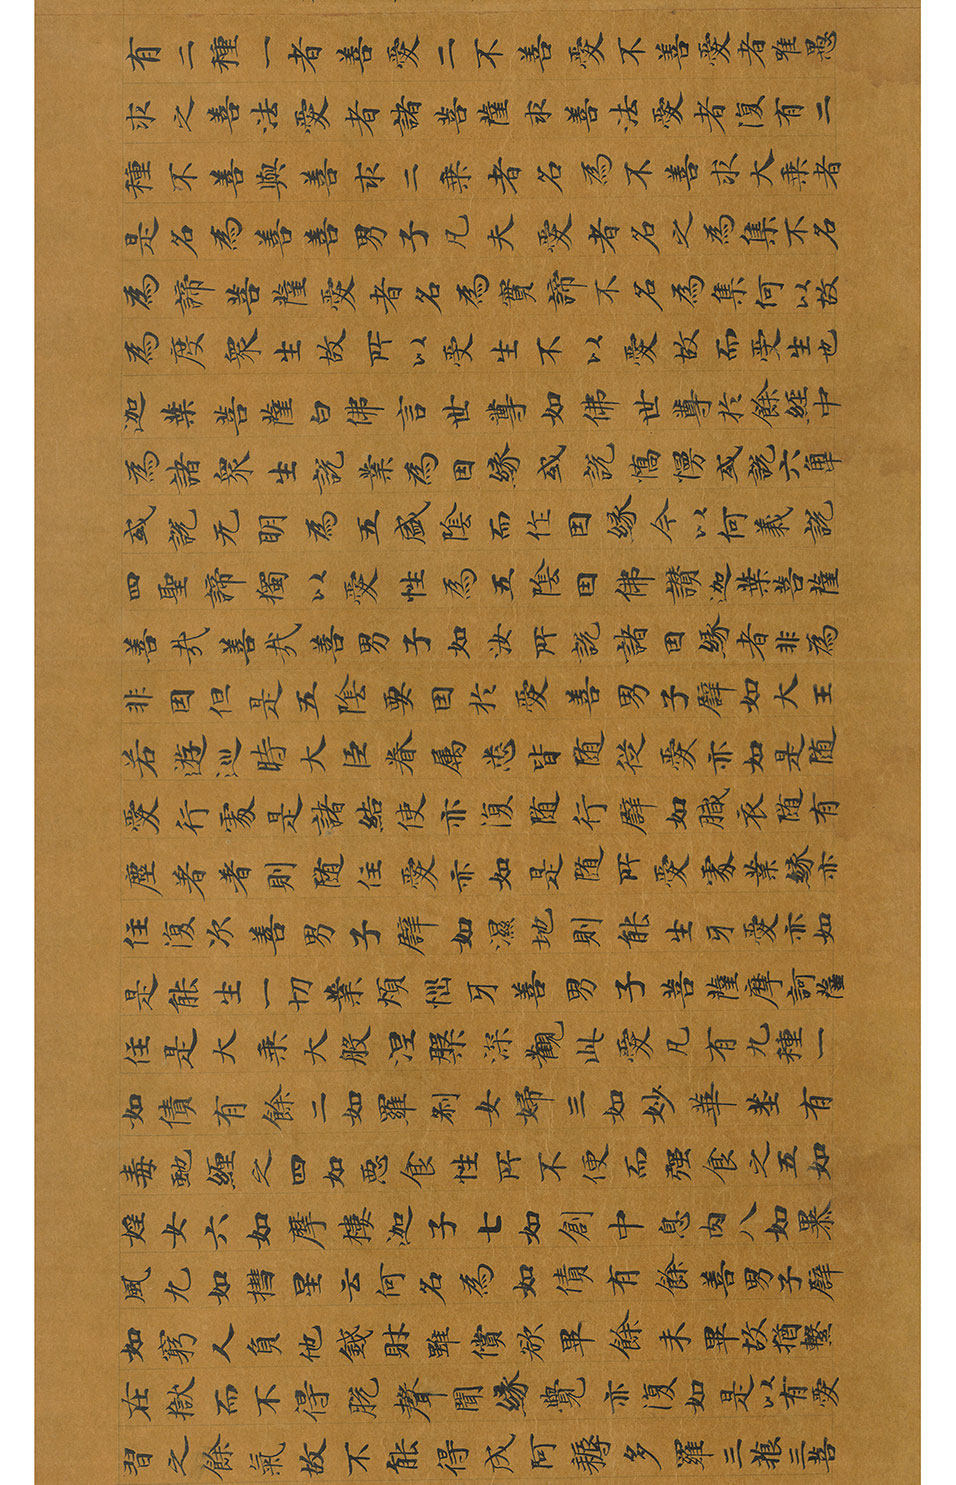 有二種一者善愛二不善愛不善愛者唯愚
求之善法愛者諸菩薩求善法愛者復有二
種不善與善求二乗者名為不善求大乗者
是名為善善男子凡夫愛者名之為集不名
為諦菩薩愛者名為實諦不名為集何以故
為度衆生故所以受生不以愛故而受生也
迦葉菩薩白佛言世尊如佛世尊於餘經中
為諸衆生說業為因緣或說憍慢或說六觸
或說无明為五盛陰而作因緣今以何義說
四聖諦獨以愛性為五陰因佛讚迦葉菩薩
善哉善哉善男子如汝所說諸因緣者非為
非因但是五陰要因於愛善男子辟如大王
若遊巡時大臣眷属悉皆随從愛亦如是随
愛行處是諸結使亦復随行辟如膩衣随有
塵著著則随住愛亦如是随所愛處業緣亦
住復次善男子辟如濕地則能生牙愛亦如
是能生一切業煩惱牙善男子菩薩摩訶薩
住是大乗大般涅槃深觀此愛凡有九種一
如債有餘二如羅剎女婦三如妙華莖有
毒虵纏之四如惡食性所不便而强食之五如
婬女六如摩樓迦子七如創中息肉八如暴
風九如彗星云何名為如債有餘善男子辟
如窮人負他錢財雖償欲畢餘未畢故猶繫
在獄而不得脫聲聞緣覺亦復如是以有愛
習之餘氣故不能得成阿耨多羅三藐三菩